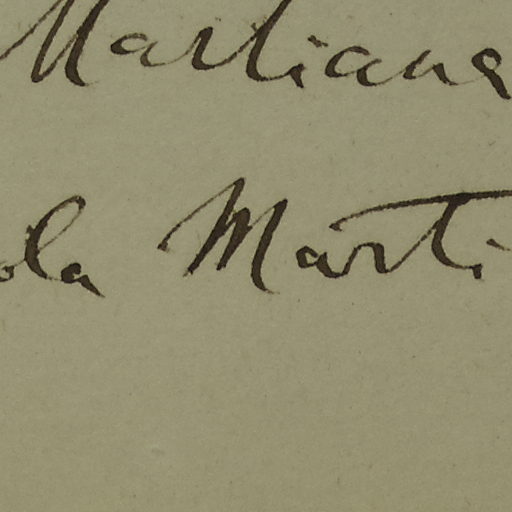 Martiana
ola Marti